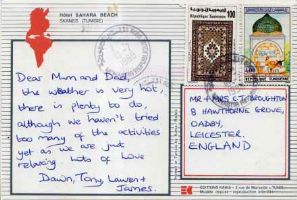 Hôtel SAHARA BEACH
SKANES (TUNISIE)
Dear Mum and Dad,
the weather is very hot,
there is plenty to do,
although we haven't tried
too many of the activities
yet as we are just
relaxing Lots of Love
Dawn, Tony, Lauren +
James.
100
MR + MRS G.T. BROUGHTON
8 HAWTHORNE GROVE,
OADBY,
LEICESTER.
ENGLAND